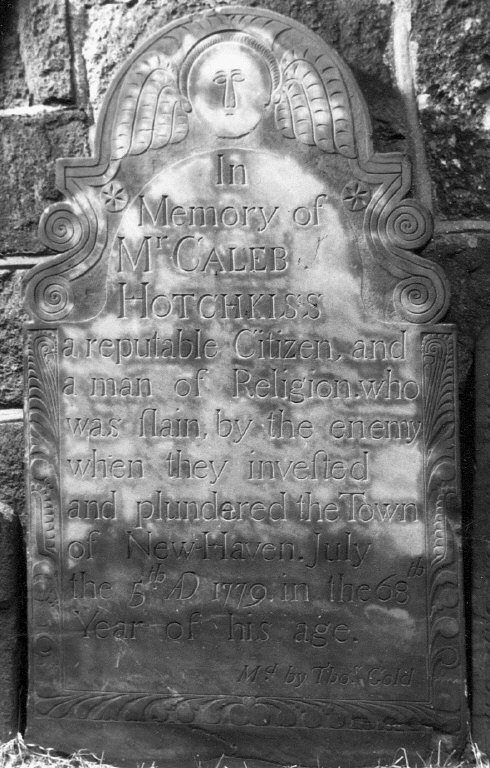 In
Memory of
Mr CALEB
HOTCHKISS
a reputable Citizen, and
a man of Religion, who
was ſlain, by the enemy
when they inveſted
and plundered the Town
of New-Haven. July
the 5th AD 1779. in the 68th
Year of his age.
Md by Thos Gold